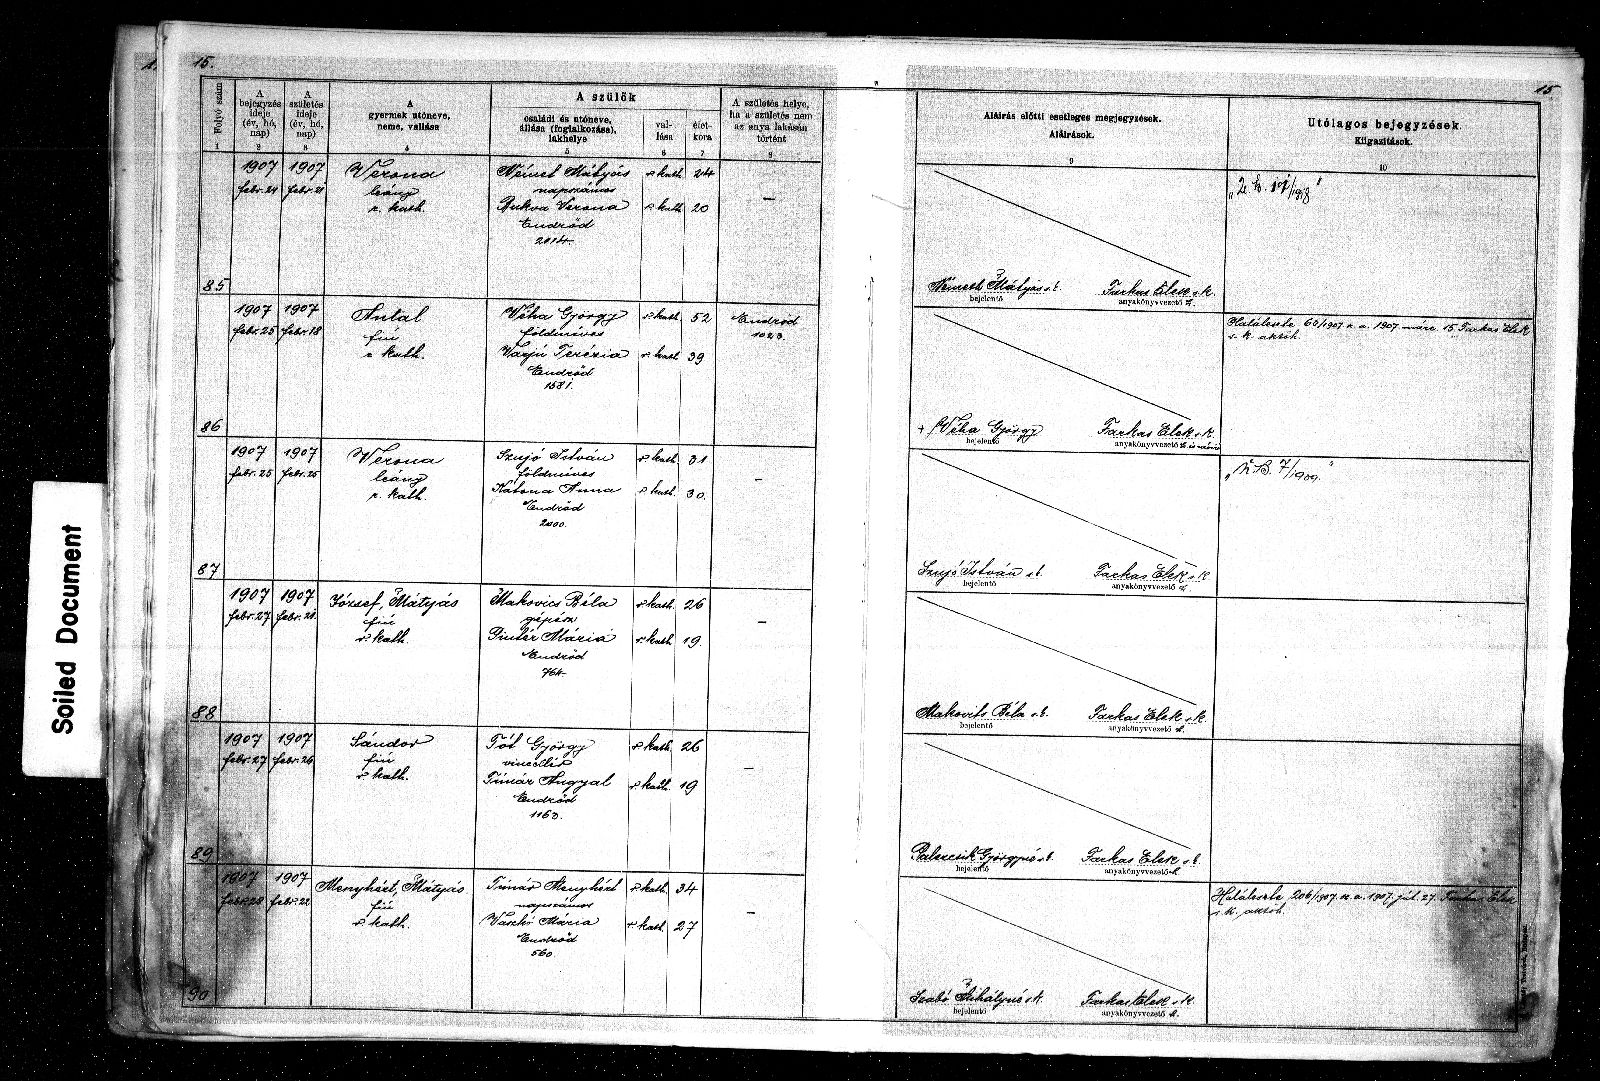 15.
15
Folyó szám
A bejegyzés ideje (év, hó, nap)
A születés ideje (év, hó, nap)
A gyermek utóneve, neme, vallása
A szülők
családi és utóneve, állása (foglalkozása), lakhelye
vallása
életkora
A születés helye, ha a születés nem az anya lakásán történt
Aláírás előtti esetleges megjegyzések.
Aláírások.
Utólagos bejegyzések.
Kiigazítások.
1 2 3 4 5 6 7 8 9 10
85
1907 febr. 24
1907 febr. 21
Verona
leány
r. kath.
Német Mátyás r. kath. 24
napszámos
Bukva Verona r. kath. 20
Endrőd
2014.
—
Németh Mátyás s. k.
bejelentő
Farkas Elek s. k.
anyakönyvvezető
86
1907 febr. 25
1907 febr. 18
Antal
fiú
r. kath.
Véha György r. kath. 52
földmíves
Varjú Terézia r. kath. 39
Endrőd
1581.
Endrőd
1023.
Véha György
bejelentő
Farkas Elek s. k.
anyakönyvvezető
60/1907. 1907. márc. 15. Farkas Elek
s. k. aköv.
87
1907 febr. 25
1907 febr. 25
Verona
leány
r. kath.
Szujó István r. kath. 31
földmíves
Katona Anna r. kath. 30.
Endrőd
2000.
—
Szujó István s. k.
bejelentő
Farkas Elek s. k.
anyakönyvvezető
7/1909.
88
1907 febr. 27
1907 febr. 21
József, Mátyás
fiú
r. kath.
Makovics Béla r. kath. 26
gépész
Pintér Mária r. kath. 19.
Endrőd
764.
—
Makovits Béla s. k.
bejelentő
Farkas Elek s. k.
anyakönyvvezető
89
1907 febr. 27
1907 febr. 26
Sándor
fiú
r. kath.
Tót György r. kath. 26
vincellér
Timár Angyal r. kath. 19
Endrőd
1163.
—
Györgyné s. k.
bejelentő
Farkas Elek s. k.
anyakönyvvezető
90
1907 febr. 28
1907 febr. 22
Menyhért, Mátyás
fiú
r. kath.
Timár Menyhért r. kath. 34
napszámos
Vaskó Mária r. kath. 27
Endrőd
560
—
Szabó Mihályné s. k.
bejelentő
Farkas Elek s. k.
anyakönyvvezető
206/1907. 1907. júl. 27. Farkas Elek
s. k. aköv.
Soiled Document